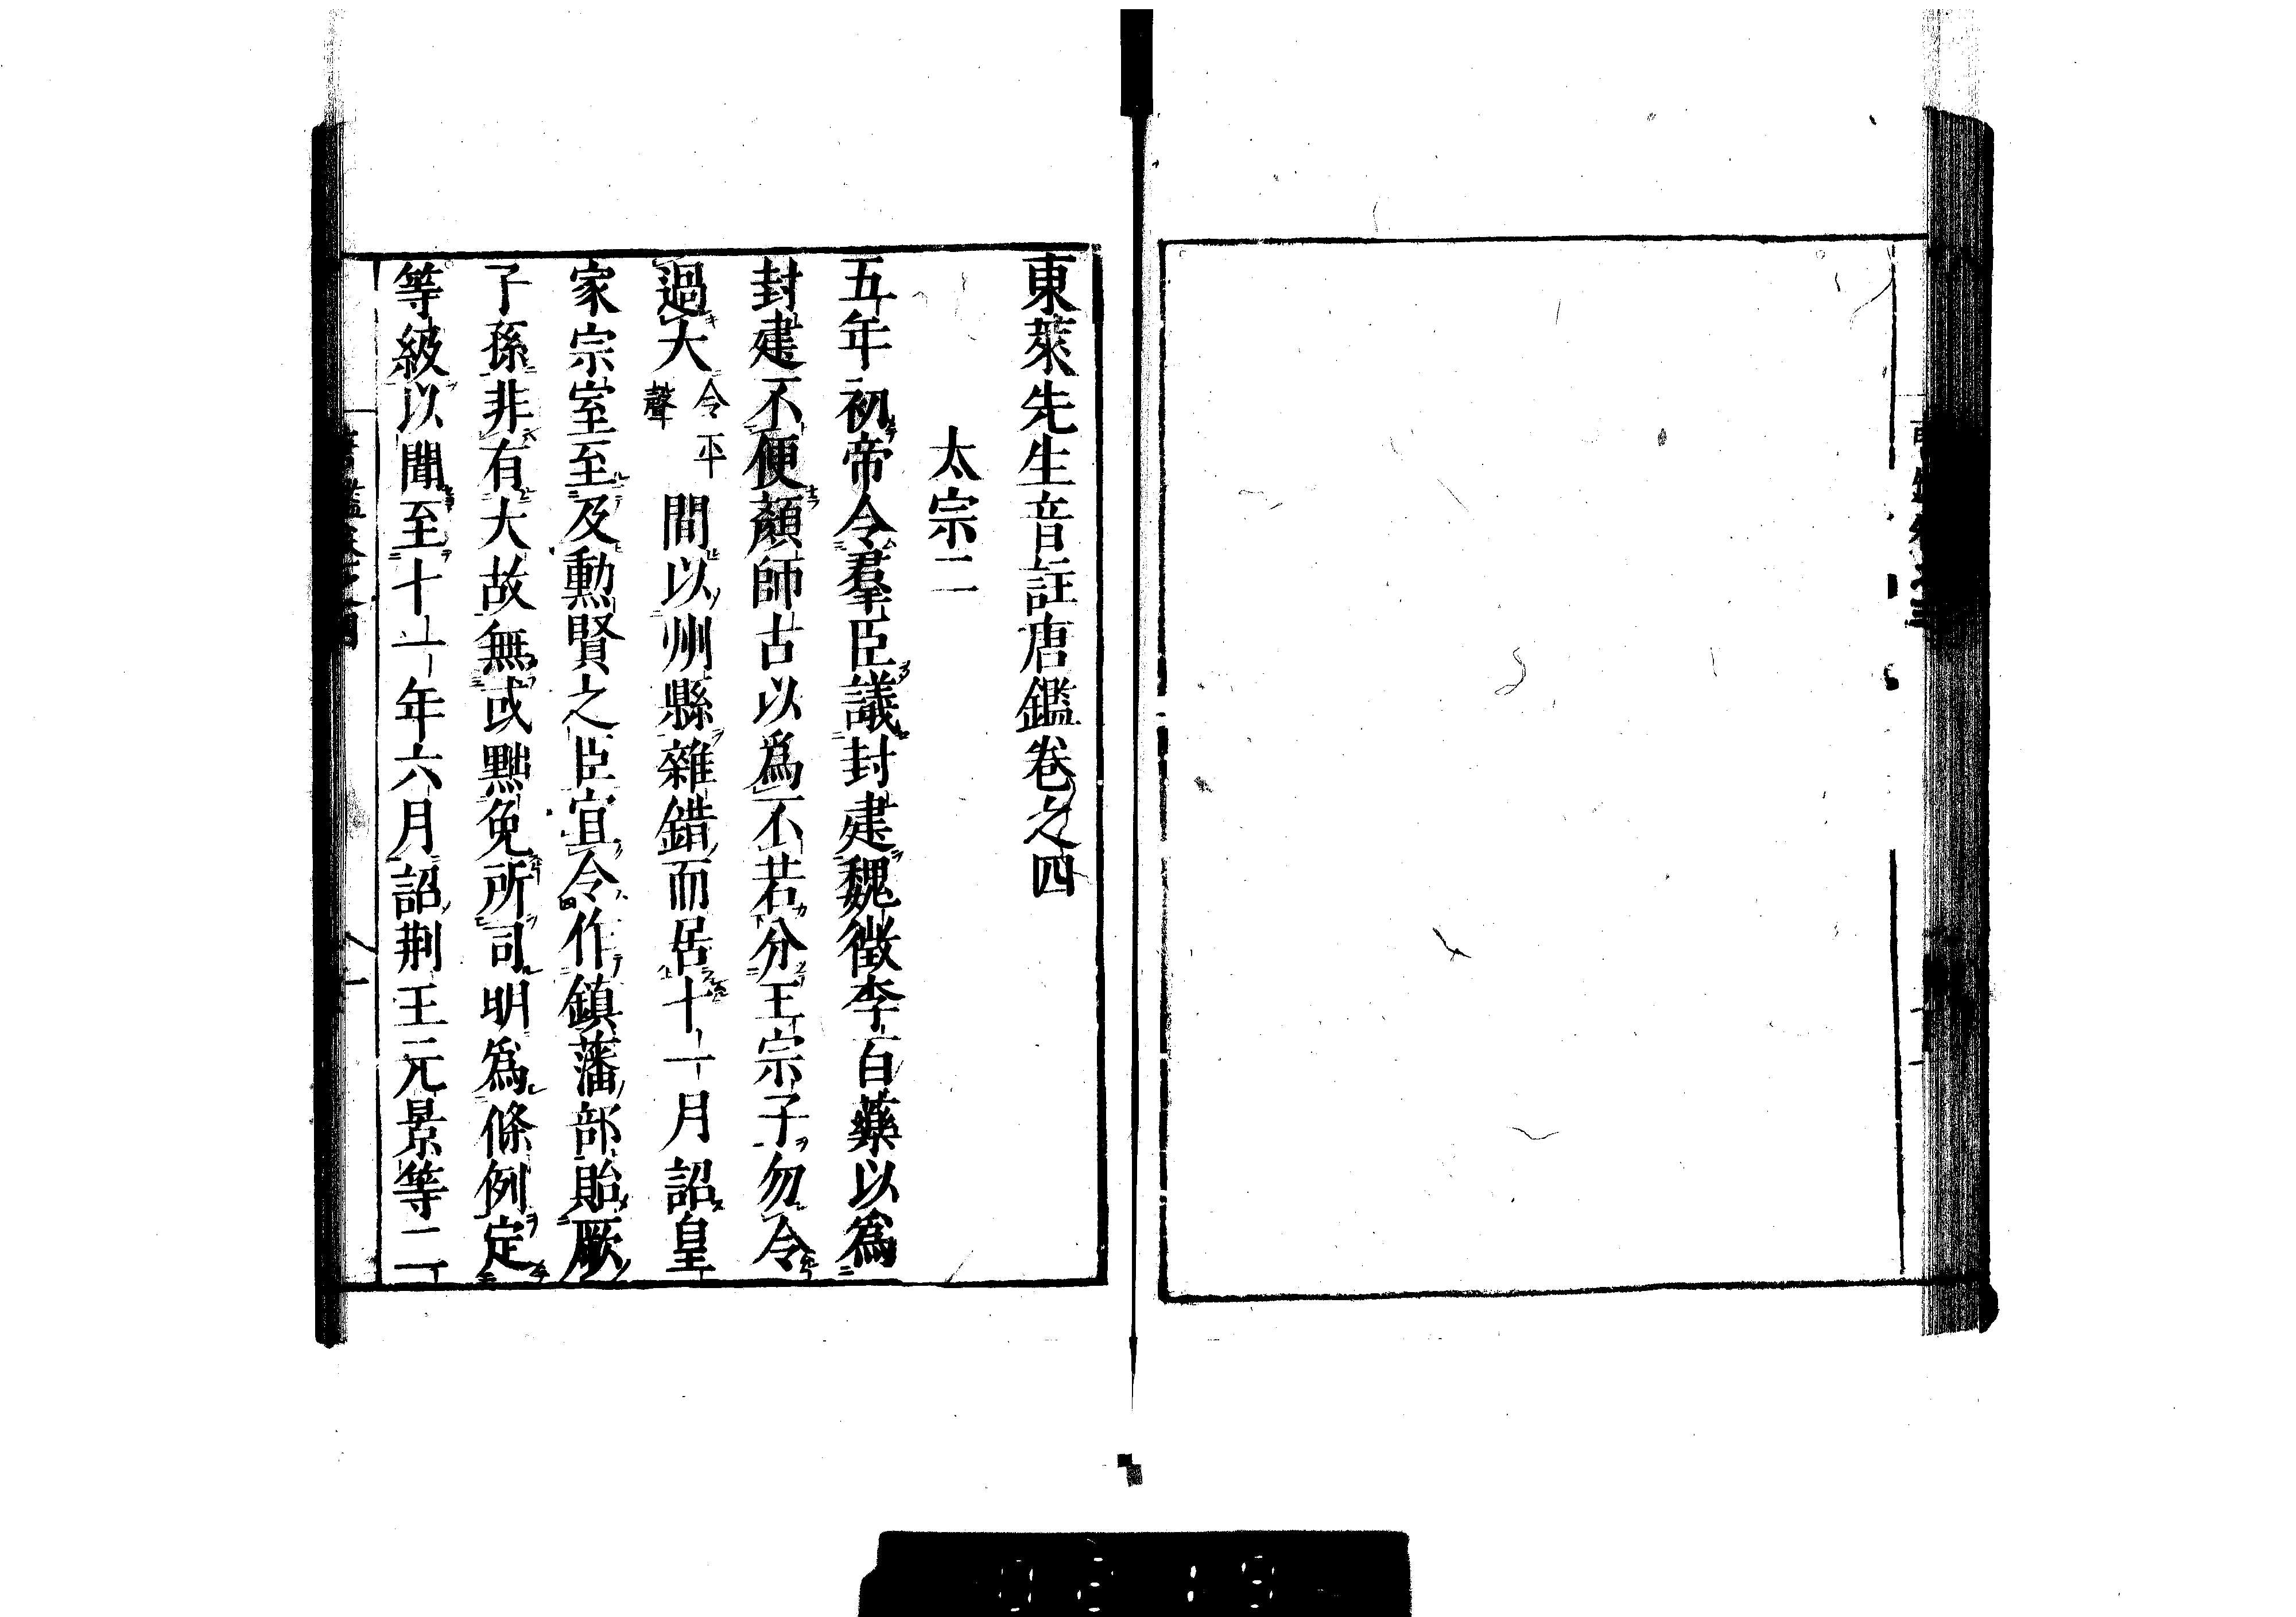 東萊先生音註唐鑑卷之四
太宗二
五年初帝令羣臣議封建魏徵李百藥以爲
封建不便顏師古以爲不若分王宗子勿令
過大令平聲間以州縣雜錯而居十一月詔皇
家宗室至及勳賢之臣宜令作鎮藩部貽厥
子孫非有大故無或黜免所司明爲條例定
等級以聞至十一年六月詔荆王元景等二
0219